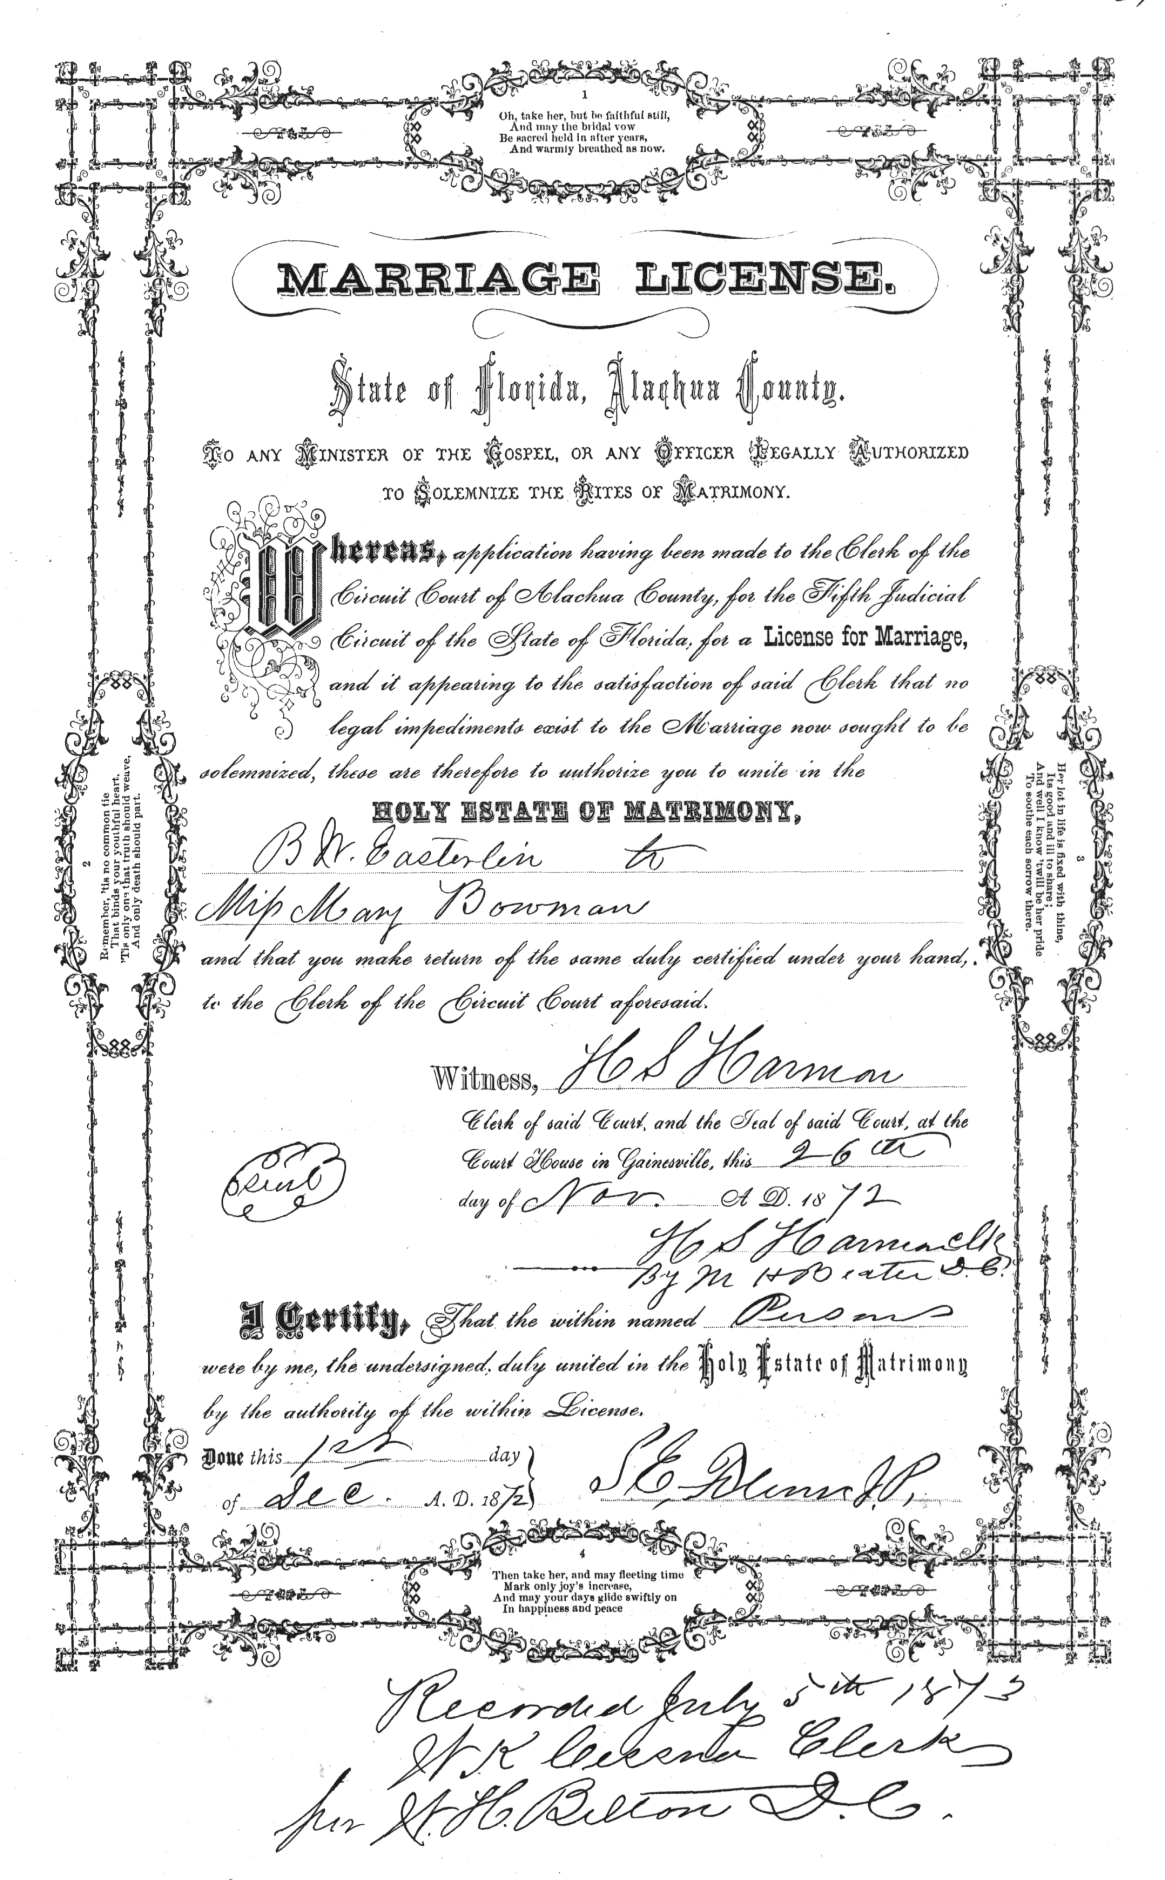 1
Oh, take her, but be faithful still,
And may the bridal vow
Be sacred held in after years,
And warmly breathed as now.
MARRIAGE LICENSE.
State of Florida, Alachua County.
TO ANY MINISTER OF THE GOSPEL, OR ANY OFFICER LEGALLY AUTHORIZED
TO SOLEMNIZE THE RITES OF MATRIMONY.
Whereas, application having been made to the Clerk of the
Circuit Court of Alachua County, for the Fifth Judicial
Circuit of the State of Florida, for a License for Marriage,
and it appearing to the satisfaction of said Clerk that no
legal impediments exist to the Marriage now sought to be
solemnized, these are therefore to authorize you to unite in the
HOLY ESTATE OF MATRIMONY,
B W. Easterlin to
Miss Mary Bowman
and that you make return of the same duly certified under your hand,
to the Clerk of the Circuit Court aforesaid.
Witness, H S Harmon
Clerk of said Court, and the Seal of said Court, at the
Court House in Gainesville, this 26th
day of Nov. A D. 1872
Seal
H S Harmon Clk
By M H D. C.
I Certify, That the within named Persons
were by me, the undersigned, duly united in the Holy Estate of Matrimony
by the authority of the within License.
Done this 1st day
of Dec. A. D. 1872
S E, J.P,
2
Remember, 'tis no common tie
That binds your youthful heart,
'Tis only one that truth should weave,
And only death should part.
3
Her lot in life is fixed with thine,
Its good and ill to share;
And well I know 'twill be her pride
To soothe each sorrow there.
4
Then take her, and may fleeting time
Mark only joy's increase,
And may your days glide swiftly on
In happiness and peace
Recorded July 5th 1873
W K Cessna Clerk
per W. H. Belton D. C.